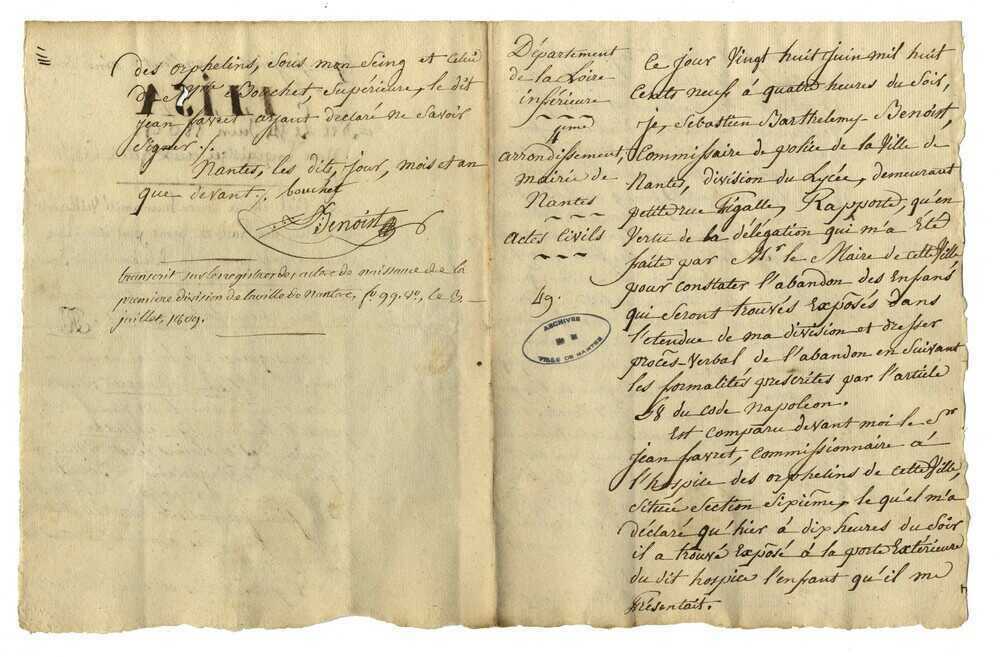 des orphelins, sous mon seing et celui
de Bouchet, Supérieure, le dit
jean favret ayant déclaré ne Savoir
Signer ./.
Nantes, les dits, jour, mois et an
que devant ./. bouchet
Benoist
transcrit sur le registre des actes de naissance de la
première division de la ville de Nantes, fo. 99. Vo., le
juillet, 1809.
Département
de la Loire
inférieure
4eme
arrondissement,
mairie de
Nantes
actes Civils
49.
ARCHIVES
VILLE DE NANTES
Ce jour Vingt huit juin mil huit
Cents neuf, à quatre heures du Soir,
Je, Sébastien Barthelemy-Benoist,
Commissaire de police de la Ville de
Nantes, division du Lycée, demeurant
petite rue figalle, Rapporte, qu'en
Vertu de la délégation qui m'a Eté
faite par Mr. le Maire de cette Ville
pour constater l'abandon des Enfans
qui Seront trouvés Exposés dans
l'étendue de ma division et dresser
procès-Verbal de l'abandon en Suivant
les formalités prescrites par l'article
58 du code Napoléon.
Est comparu devant moi le Sr.
jean favret, commissionnaire à
l'hospice des orphelins de cette Ville,
Située Section Sixième, le quel m'a
déclaré qu'hier à dix heures du Soir
il a trouvé Exposé à la porte Extérieure
du dit hospice l'enfant qu'il me
Présentait.